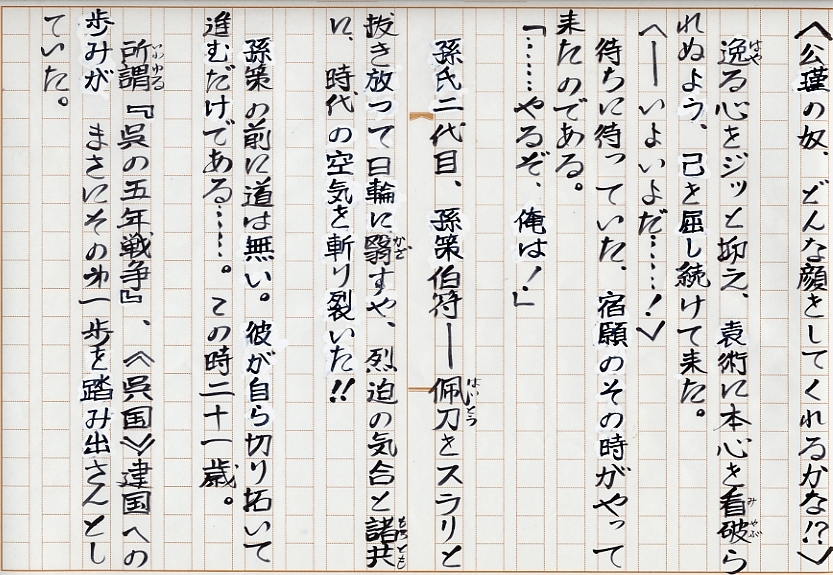 〈公瑾の奴、どんな顔をしてくれるかな!?〉
逸る心をジッと抑え、袁術に本心を看破ら
れぬよう、己を屈し続けて来た。
〈──いよいよだ……！〉
待ちに待っていた、宿願のその時がやって
来たのである。
「……やるぞ、俺は！」
孫氏二代目、孫策伯符──佩刀をスラリと
抜き放って日輪に翳すや、烈迫の気合と諸共
に、時代の空気を斬り裂いた!!
孫策の前に道は無い。彼が自ら切り拓いて
進むだけである……。この時二十一歳。
所謂『呉の五年戦争』、《呉国》建国への
歩みが　まさにその第一歩を踏み出さんとし
ていた。